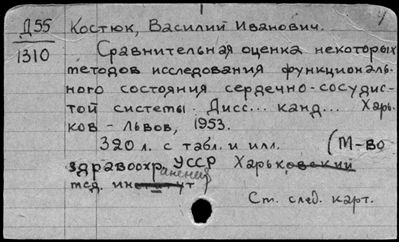 Д55 Костюк, Василий Иванович.
1310 Сравнительная оценка некоторых
методов исследования функциональ-
ного состояния сердечно-сосудис-
той системы. Дисс... канд... Харь-
ков - Львов, 1953.
320 л. с табл. и илл. (М-во
здравоохранения УССР Харьковский
мед. институт
Ст. след. карт.